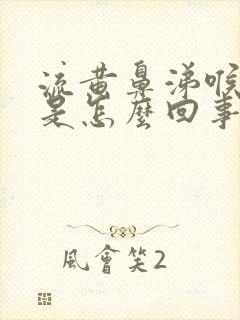 流黄鼻涕喉
是怎麼回事
風會笑2